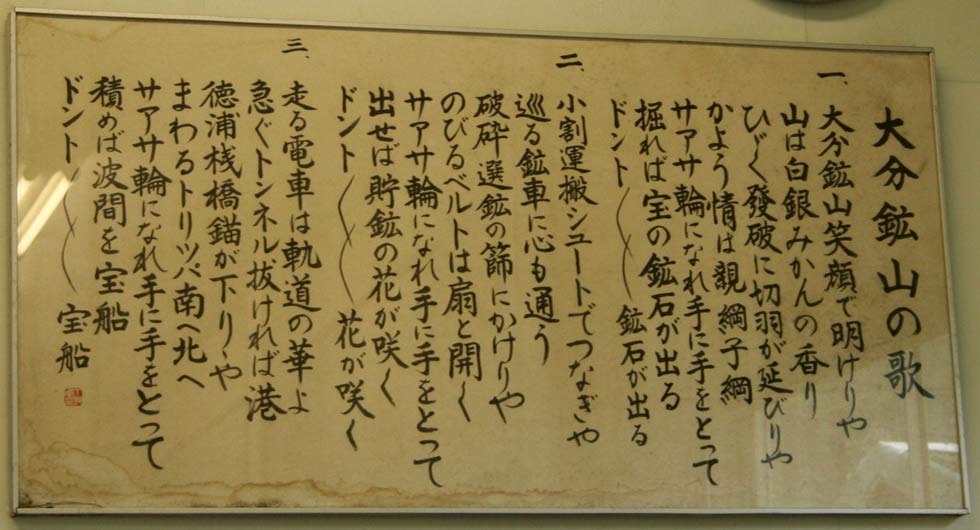 大分鉱山の歌
一、大分鉱山笑顔で明けりゃ
山は白銀みかんの香り
ひびく發破に切羽が延びりゃ
かよう情は親綱子綱
サアサ輪になれ手に手をとって
掘れば宝の鉱石が出る
ドント〳〵鉱石が出る
二、小割運搬シュートでつなぎゃ
巡る鉱車に心も通う
破砕選鉱の篩にかけりゃ
のびるベルトは扇と開く
サアサ輪になれ手に手をとって
出せば貯鉱の花が咲く
ドント〳〵花が咲く
三、走る電車は軌道の華よ
急ぐトンネル抜ければ港
徳浦桟橋錨が下りゃ
まわるトリッパ南へ北へ
サアサ輪になれ手に手をとって
積めば波間を宝船
ドント〳〵宝船